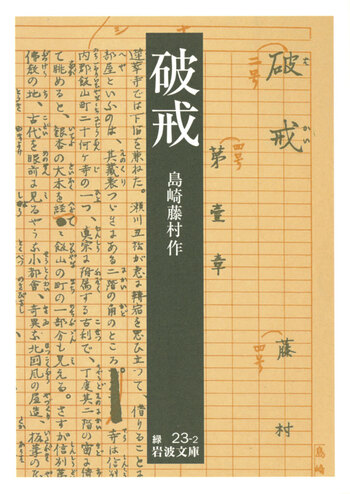 破戒
島崎藤村作
緑 23-2
岩波文庫
破戒
はかい
二号
第壹章
四号
藤村
四号
島崎
蓮華寺では下宿を兼ねた。瀬川丑松が急に轉宿を思ひ立つて、借
部屋といふのは、其藏裏つゞきにある二階の角のところ。
内郡飯山町二十何ヶ寺の一つ、眞宗に附属する古刹で、丁度其二階の窓に倚
て眺めると、銀杏の大木を經てゝ飯山の町の一部分も見える。さすが信州第
佛教の地、古代を眼前に見るやうな小都會、奇異な北國風の屋造、板葺の